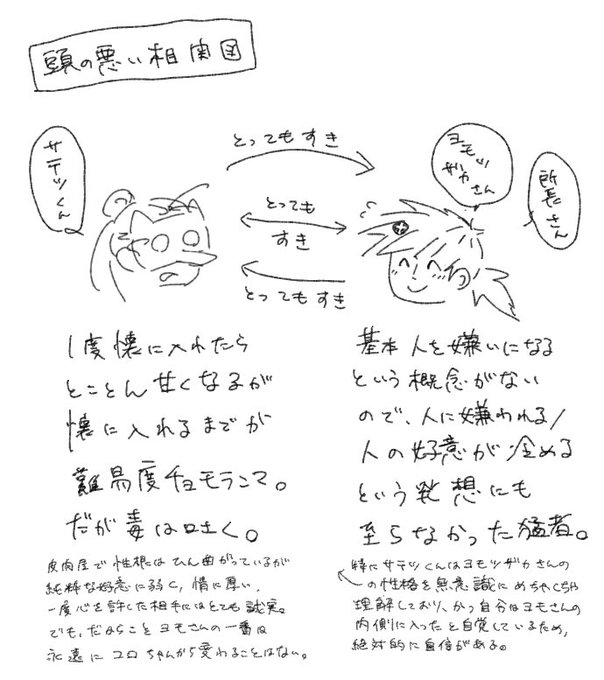 頭の悪い相関図
サテツくん
とってもすき
ヨモツ
ザカさん
所長さん
とっても
すき
とってもすき
1度懐に入れたら
とことん甘くなるが
懐に入れるまでが
難易度チョモランマ。
だが毒は吐く。
皮肉屋で性根はひん曲がっているが
純粋な好意に弱く、情に厚い。
一度心を許した相手にはとても誠実。
でも、だからこそヨモさんの一番は
永遠にコロちゃんから変わることはない。
基本人を嫌いになる
という概念がない
ので、人に嫌われる/
人の好意が冷める
という発想にも
至らなかった猛者。
特にサテツくんはヨモツザカさんの
の性格を無意識にめちゃくちゃ
理解しており、かつ自分はヨモさんの
内側に入ったと自覚しているため、
絶対的に自信がある。